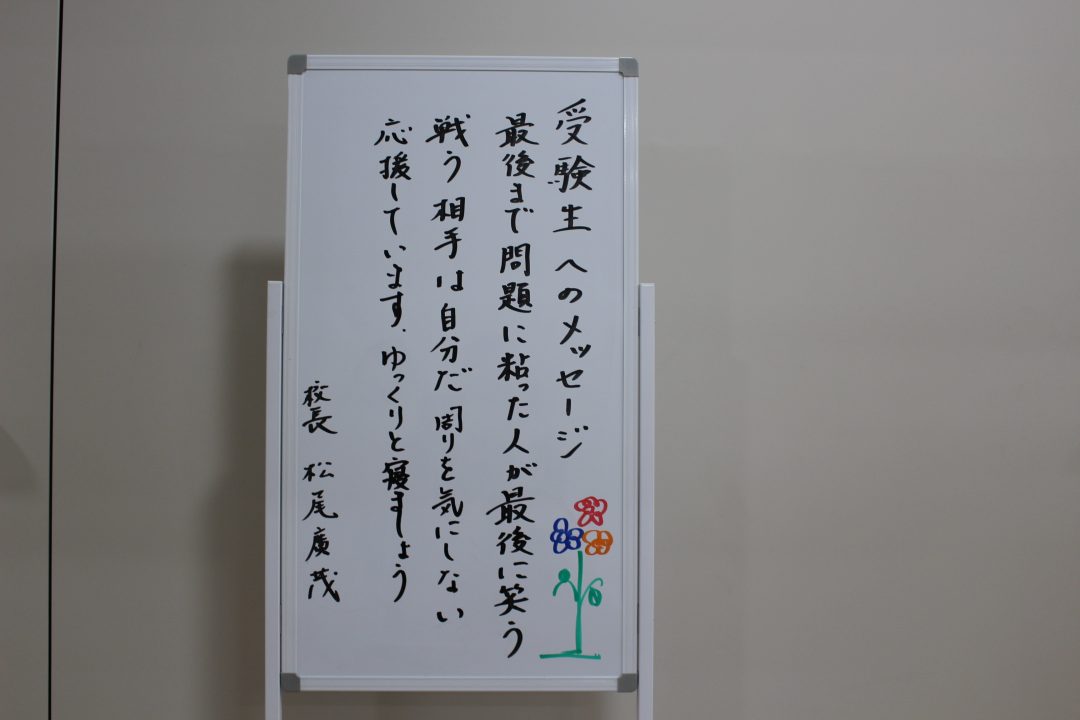 受験生へのメッセージ
最後まで問題に粘った人が最後に笑う
戦う相手は自分だ 周りを気にしない
応援しています.ゆっくりと寝ましょう
校長 松尾廣茂